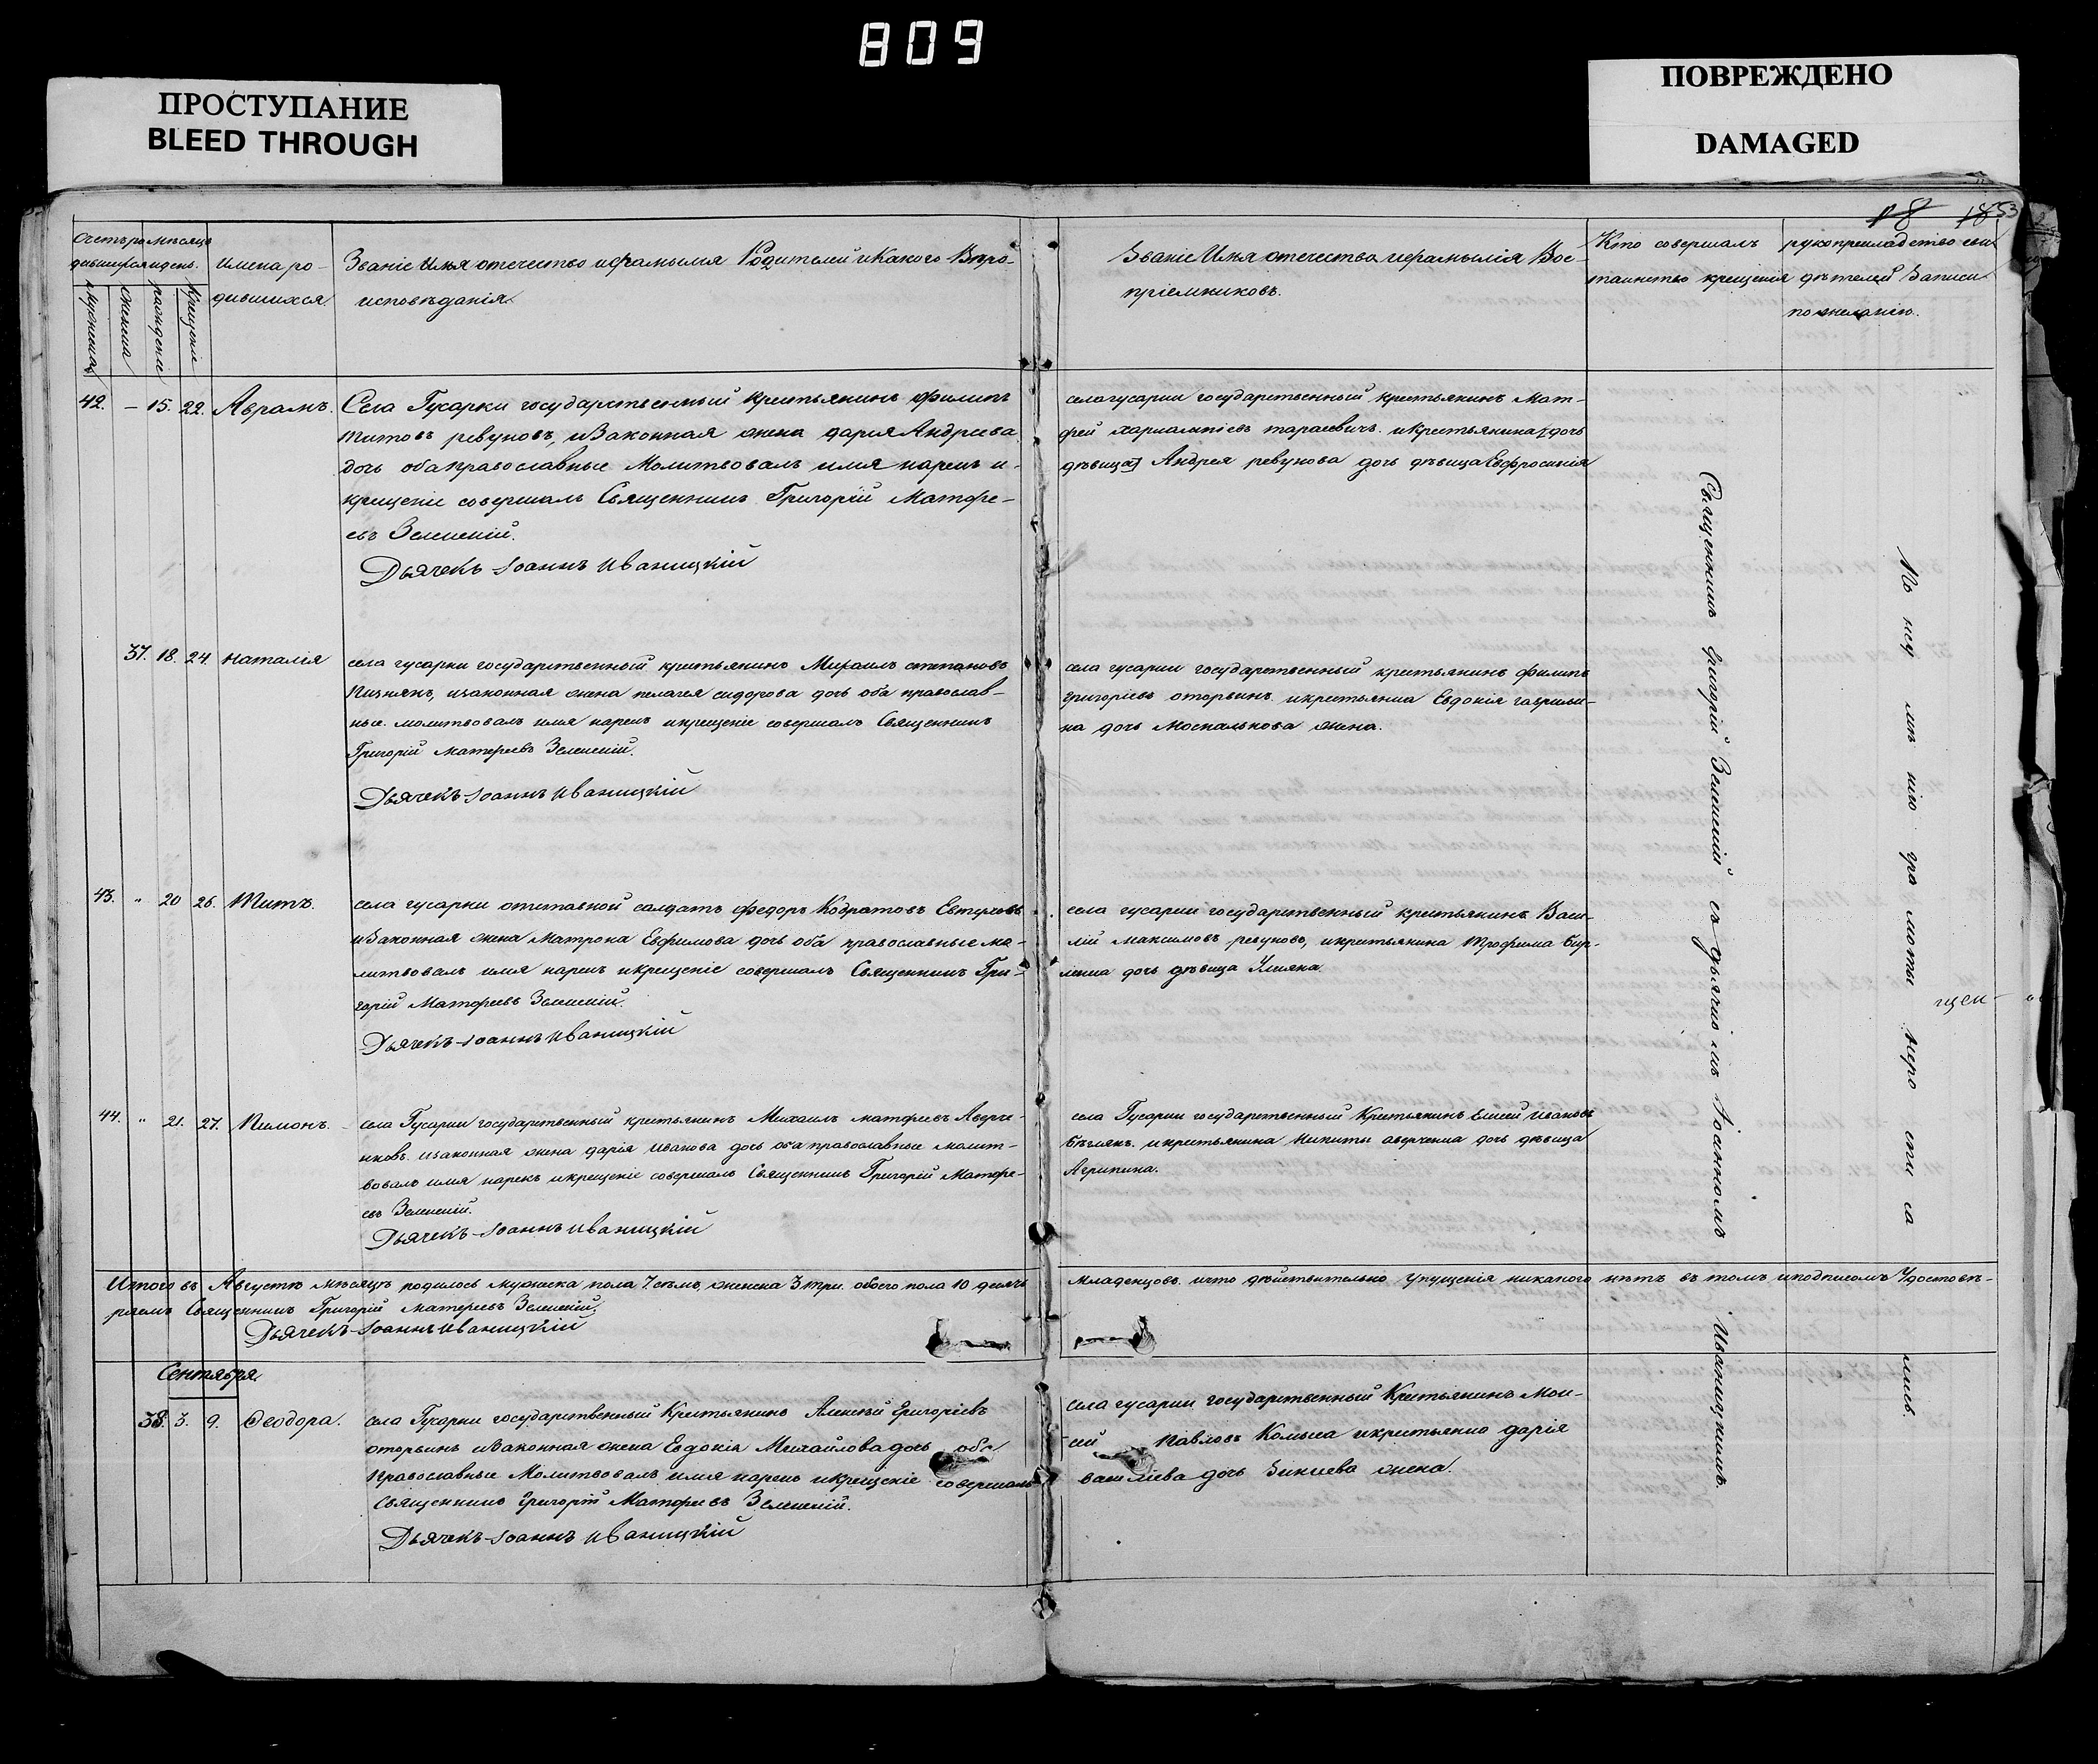 809
ПРОСТУПАНИЕ
BLEED THROUGH
ПОВРЕЖДЕНО
DAMAGED
18 1853
Счетъ ро- мѣсяцъ
дившихся и день.
мужеска
женска
рожденіе
крещеніе
Имена ро-
дившихся.
Званіе Имя отечество и фамилія Родителей и Какого Вѣро-
исповѣданія.
Званіе Имя отечество и фамилія Вос-
пріемниковъ.
Кто совершалъ
таинство крещенія
рукоприкладство сви-
дѣтелей Записи
по желанію.
42. — 15. 22. Аврамъ.
Села Гусарки государственный крестьянинъ филипъ
титовъ ревуновъ, и Законная жена дарія Андреева
дочь оба православные Молитвовалъ имя нарекъ и
крещеніе совершалъ Священникъ Григорій Матфе-
евъ Зеленскій.
Дьячекъ Іоаннъ Иваницкій
села гусарки государственный крестьянинъ Мат-
фей харлампіевъ тарасевичъ. и крестьянина дочь
дѣвица Андрея ревунова дочь дѣвица Евфросинія
37. 18. 24. Наталія
села гусарки государственный крестьянинъ Михаилъ степановъ
и законная жена пелагея сидорова дочь оба православ-
ные. молитвовалъ имя нарекъ и крещеніе совершалъ Священникъ
Григорій Матфеевъ Зеленскій.
Дьячекъ Іоаннъ Иваницкій
села гусарки государственный крестьянинъ филипъ
григоріевъ оторвинъ. и крестьянка Евдокія гаврили-
на дочь Москалькова жена.
43. " 20 26. Титъ.
села гусарки отставной салдатъ федоръ Кодратовъ Евтуховъ
и Законная жена Матрона Евфимова дочь оба православные мо-
литвовалъ имя нарекъ и крещеніе совершалъ Священникъ Гри-
горій Матфеевъ Зеленскій.
Дьячекъ Іоаннъ Иваницкій
села гусарки государственный крестьянинъ Васи-
лій максимовъ ревуновъ, и крестьянина трофима
дочь дѣвица Уліяна.
44. " 21. 27. Пимонъ.
села Гусарки государственный крестьянинъ Михаилъ матфеевъ Аверче-
нковъ. и законная жена дарія Иванова дочь оба православные молит-
вовалъ имя нарекъ и крещеніе совершалъ Священникъ Григорій Матфе-
евъ Зеленскій.
Дьячекъ Іоаннъ Иваницкій
села Гусарки государственный Крестьянинъ Елисей Ивановъ
бѣглякъ. и крестьянина Никиты аверченка дочь дѣвица
Агрипина.
Итого въ Августѣ мѣсяцѣ родилось мужеска пола 7. семь, женска 3 три. обоего пола 10 десять
Младенцовъ. и что дѣйствительно упущенія никакого нѣтъ въ томъ и подписомъ Удостовѣ-
ряемъ Священникъ Григорій Матфеевъ Зеленскій.
Дьячекъ Іоаннъ Иваницкій
Сентября
38. 3. 9. Феодора.
села Гусарки государственный Крестьянинъ Алексѣй Григоріевъ
оторвинъ и Законная жена Евдокія Михайлова дочь оба
православные Молитвовалъ имя нарекъ и крещеніе совершалъ
Священникъ Григорій Матфеевъ Зеленскій.
Дьячекъ Іоаннъ Иваницкій
села гусарки государственный Крестьянинъ Мои-
сей павловъ Комыса и крестьянка дарія
василіева дочь жена.
Священникъ Григорій Зеленскій съ дьячкомъ Іоанномъ Иваницкимъ.
По неумѣнію грамоты неро спи са лись.
щен-